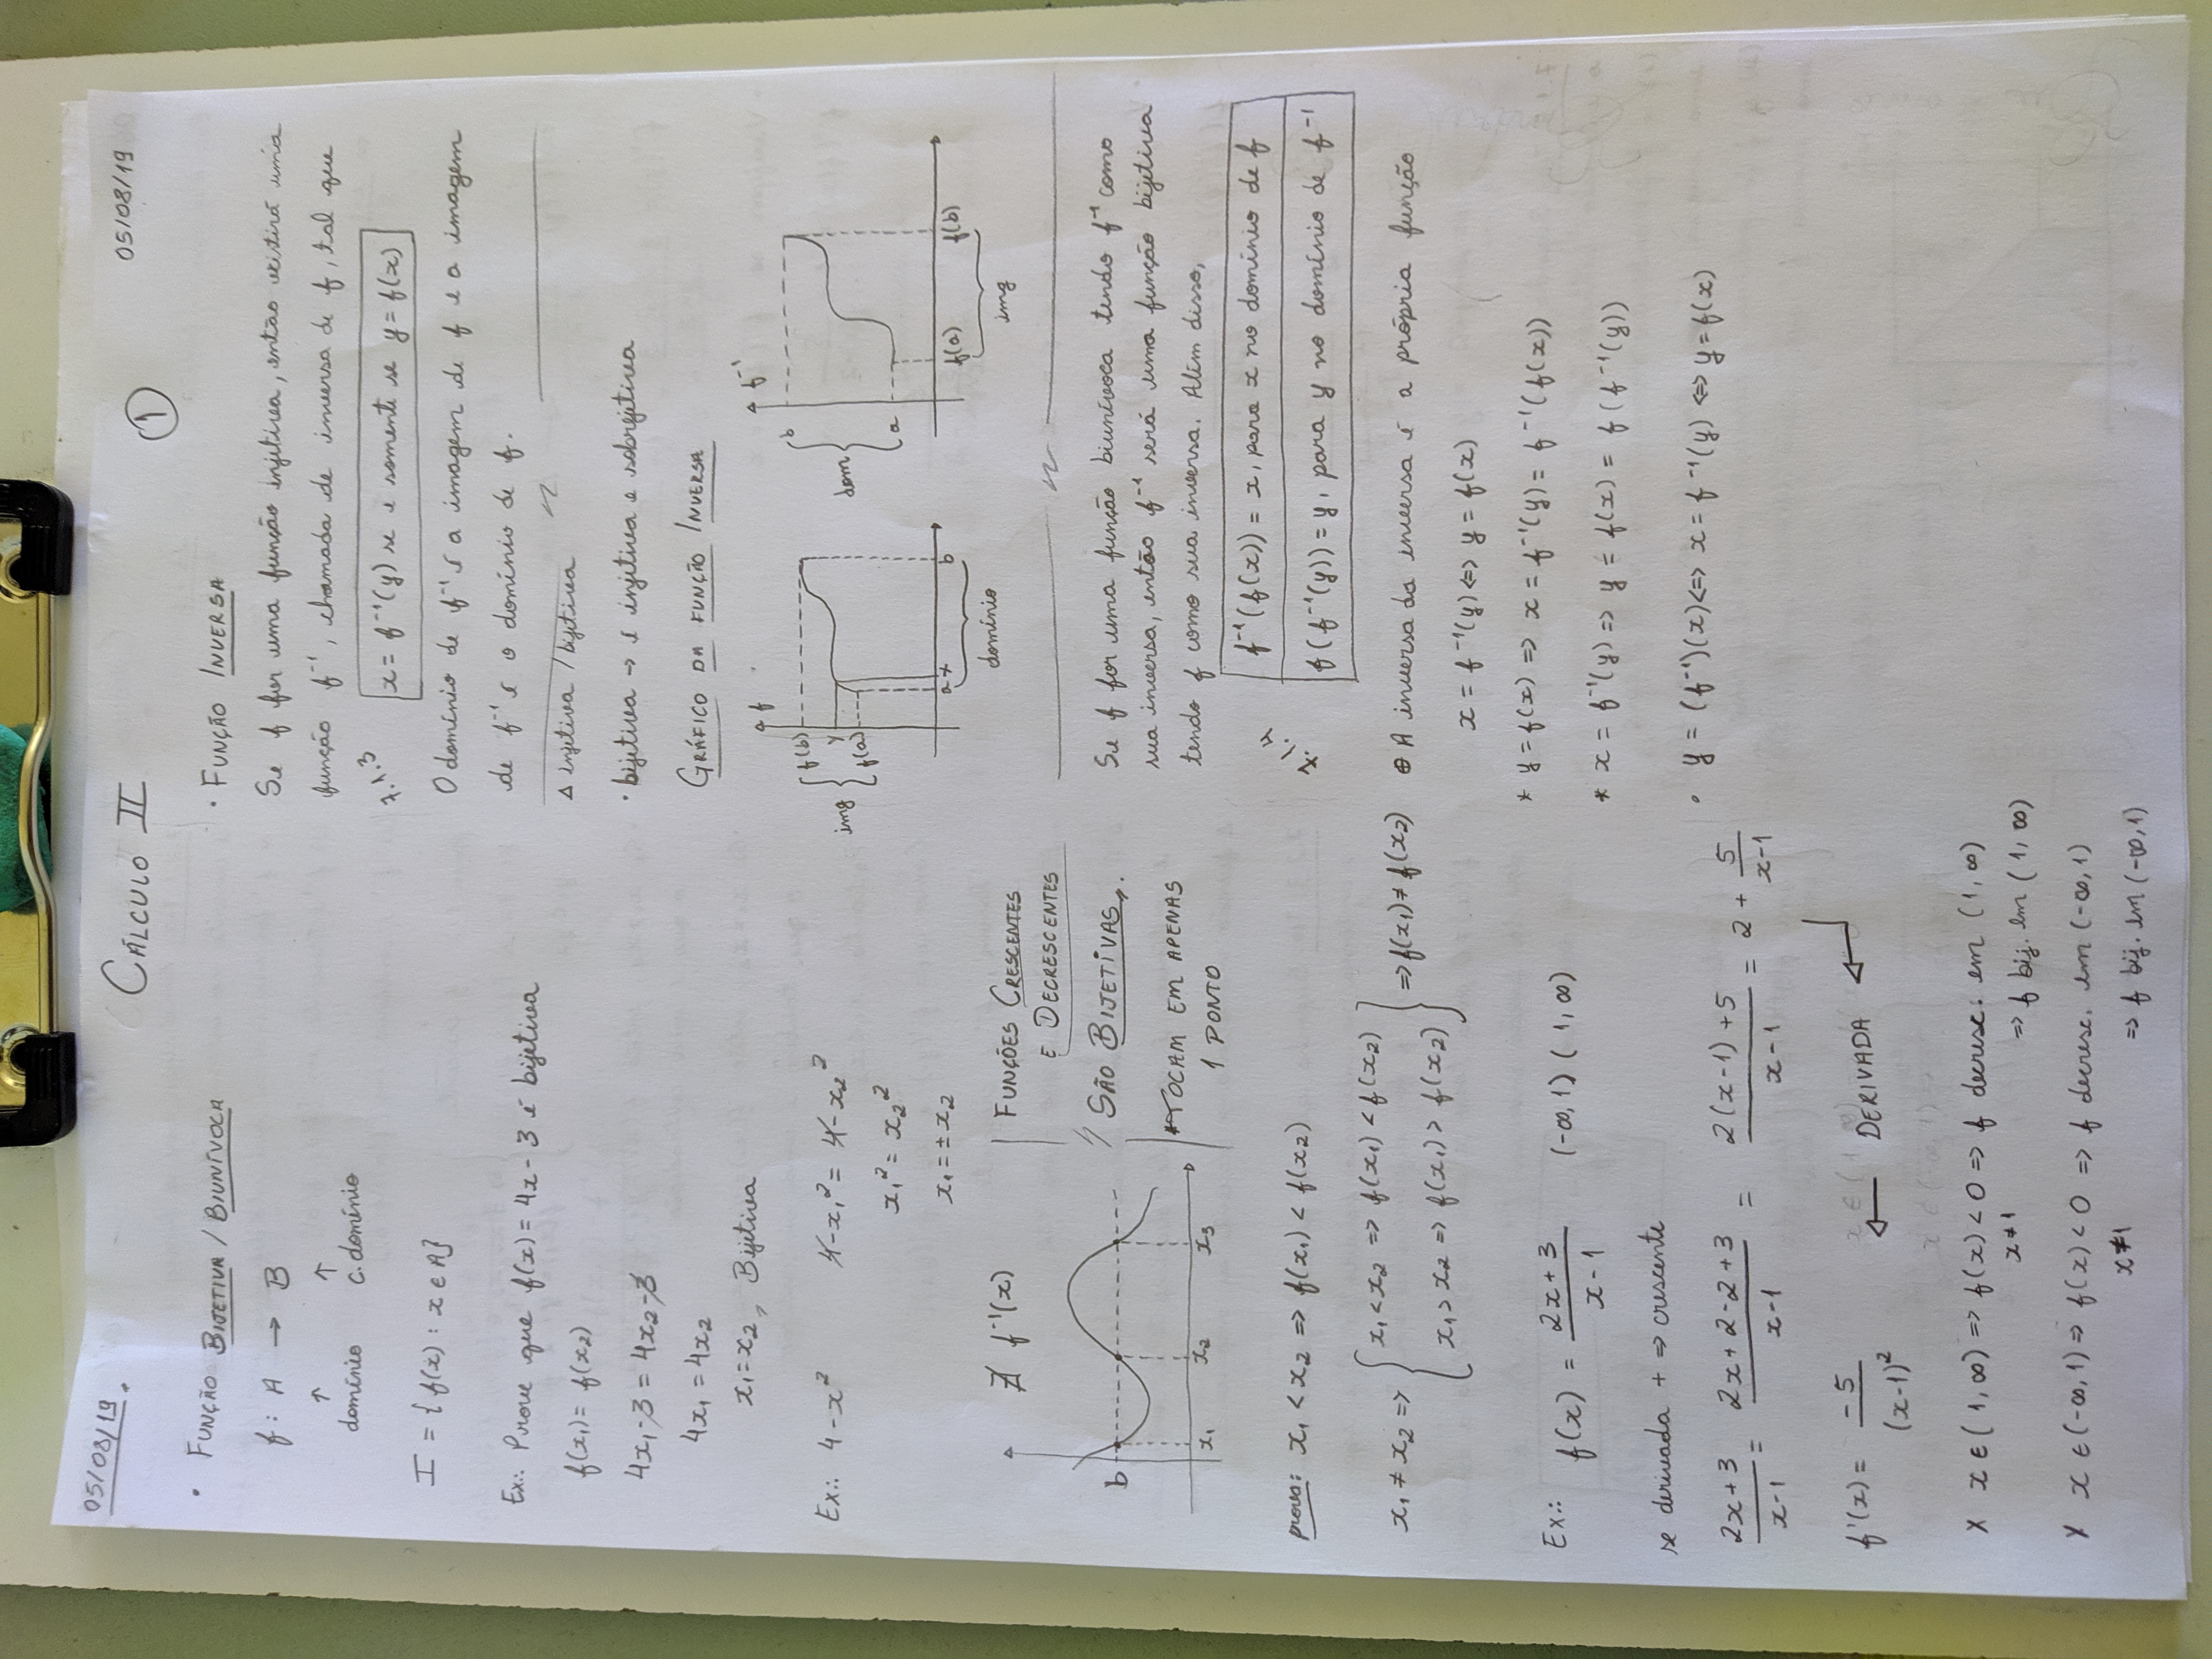 05/08/19
CÁLCULO II
1
05/08/19
• FUNÇÃO BIJETIVA / BIUNÍVOCA
f: A → B
↑ ↑
domínio C. domínio
I = {f(x) : x ∈ A}
Ex∴ Prove que f(x) = 4x - 3 é bijetiva
f(x₁) = f(x₂)
4x₁-3 = 4x₂-3
4x₁ = 4x₂
x₁=x₂,, Bijetiva
Ex∴ 4-x² 4-x₁² = 4-x₂²
x₁² = x₂²
x₁ = ± x₂
∄ f⁻¹(x)
b
x₁ x₂ x₃
FUNÇÕES CRESCENTES
E DECRESCENTES
SÃO BIJETIVAS,,.
*TOCAM EM APENAS
1 PONTO
prova: x₁ < x₂ => f(x₁) < f(x₂)
x₁ ≠ x₂ => { x₁ < x₂ => f(x₁) < f(x₂)
x₁ > x₂ => f(x₁) > f(x₂) } => f(x₁) ≠ f(x₂)
Ex∴ f(x) = (2x+3)/(x-1) (-∞,1) (1,∞)
se derivada + => crescente
(2x+3)/(x-1) = (2x+2-2+3)/(x-1) = (2(x-1)+5)/(x-1) = 2 + 5/(x-1)
f'(x) = -5/(x-1)² ← DERIVADA ←
x x ∈ (1,∞) => f(x) < 0 => f decresc. em (1,∞)
x≠1 => f bij. em (1,∞)
x x ∈ (-∞,1) => f(x) < 0 => f decresc. em (-∞,1)
x≠1 => f bij. em (-∞,1)
• FUNÇÃO INVERSA
Se f for uma função injetiva, então existirá uma
função f⁻¹, chamada de inversa de f, tal que
7.1.3 x = f⁻¹(y) se e somente se y = f(x)
O domínio de f⁻¹ é a imagem de f e a imagem
de f⁻¹ é o domínio de f.
Δ injetiva / bijetiva
• bijetiva → é injetiva e sobrejetiva
GRÁFICO DA FUNÇÃO INVERSA
f
f(b)
y
f(a)
img
a x b
domínio
f⁻¹
b
dom
a
f(a) f(b)
img
Se f for uma função biunívoca tendo f⁻¹ como
sua inversa, então f⁻¹ será uma função bijetiva
tendo f como sua inversa. Além disso,
7.1.4
f⁻¹(f(x)) = x, para x no domínio de f
f(f⁻¹(y)) = y, para y no domínio de f⁻¹
⊕ A inversa da inversa é a própria função
x = f⁻¹(y) <=> y = f(x)
* y = f(x) => x = f⁻¹(y) = f⁻¹(f(x))
* x = f⁻¹(y) => y = f(x) = f(f⁻¹(y))
• y = (f⁻¹)(x) <=> x = f⁻¹(y) <=> y = f(x)